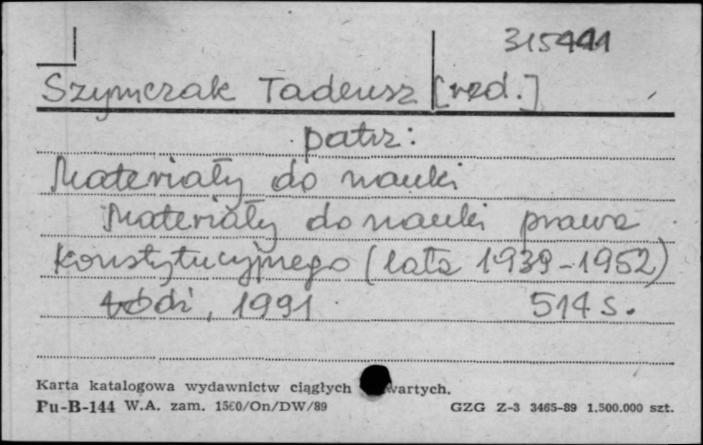 315441
Szymczak Tadeusz [red.]
patrz:
Materiały do nauki
Materiały do nauki prawa
konstytucyjnego (lata 1939-1952)
Łódź, 1991 514 s.
Karta katalogowa wydawnictw ciągłych wartych.
Pu-B-144 W.A. zam. 1560/On/DW/89 GZG Z-3 3465-89 1.500.000 szt.